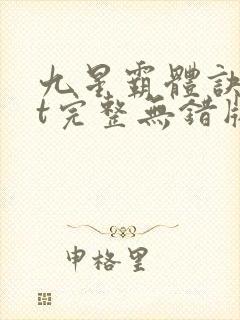 九星霸體訣
t完整無錯版
申格里